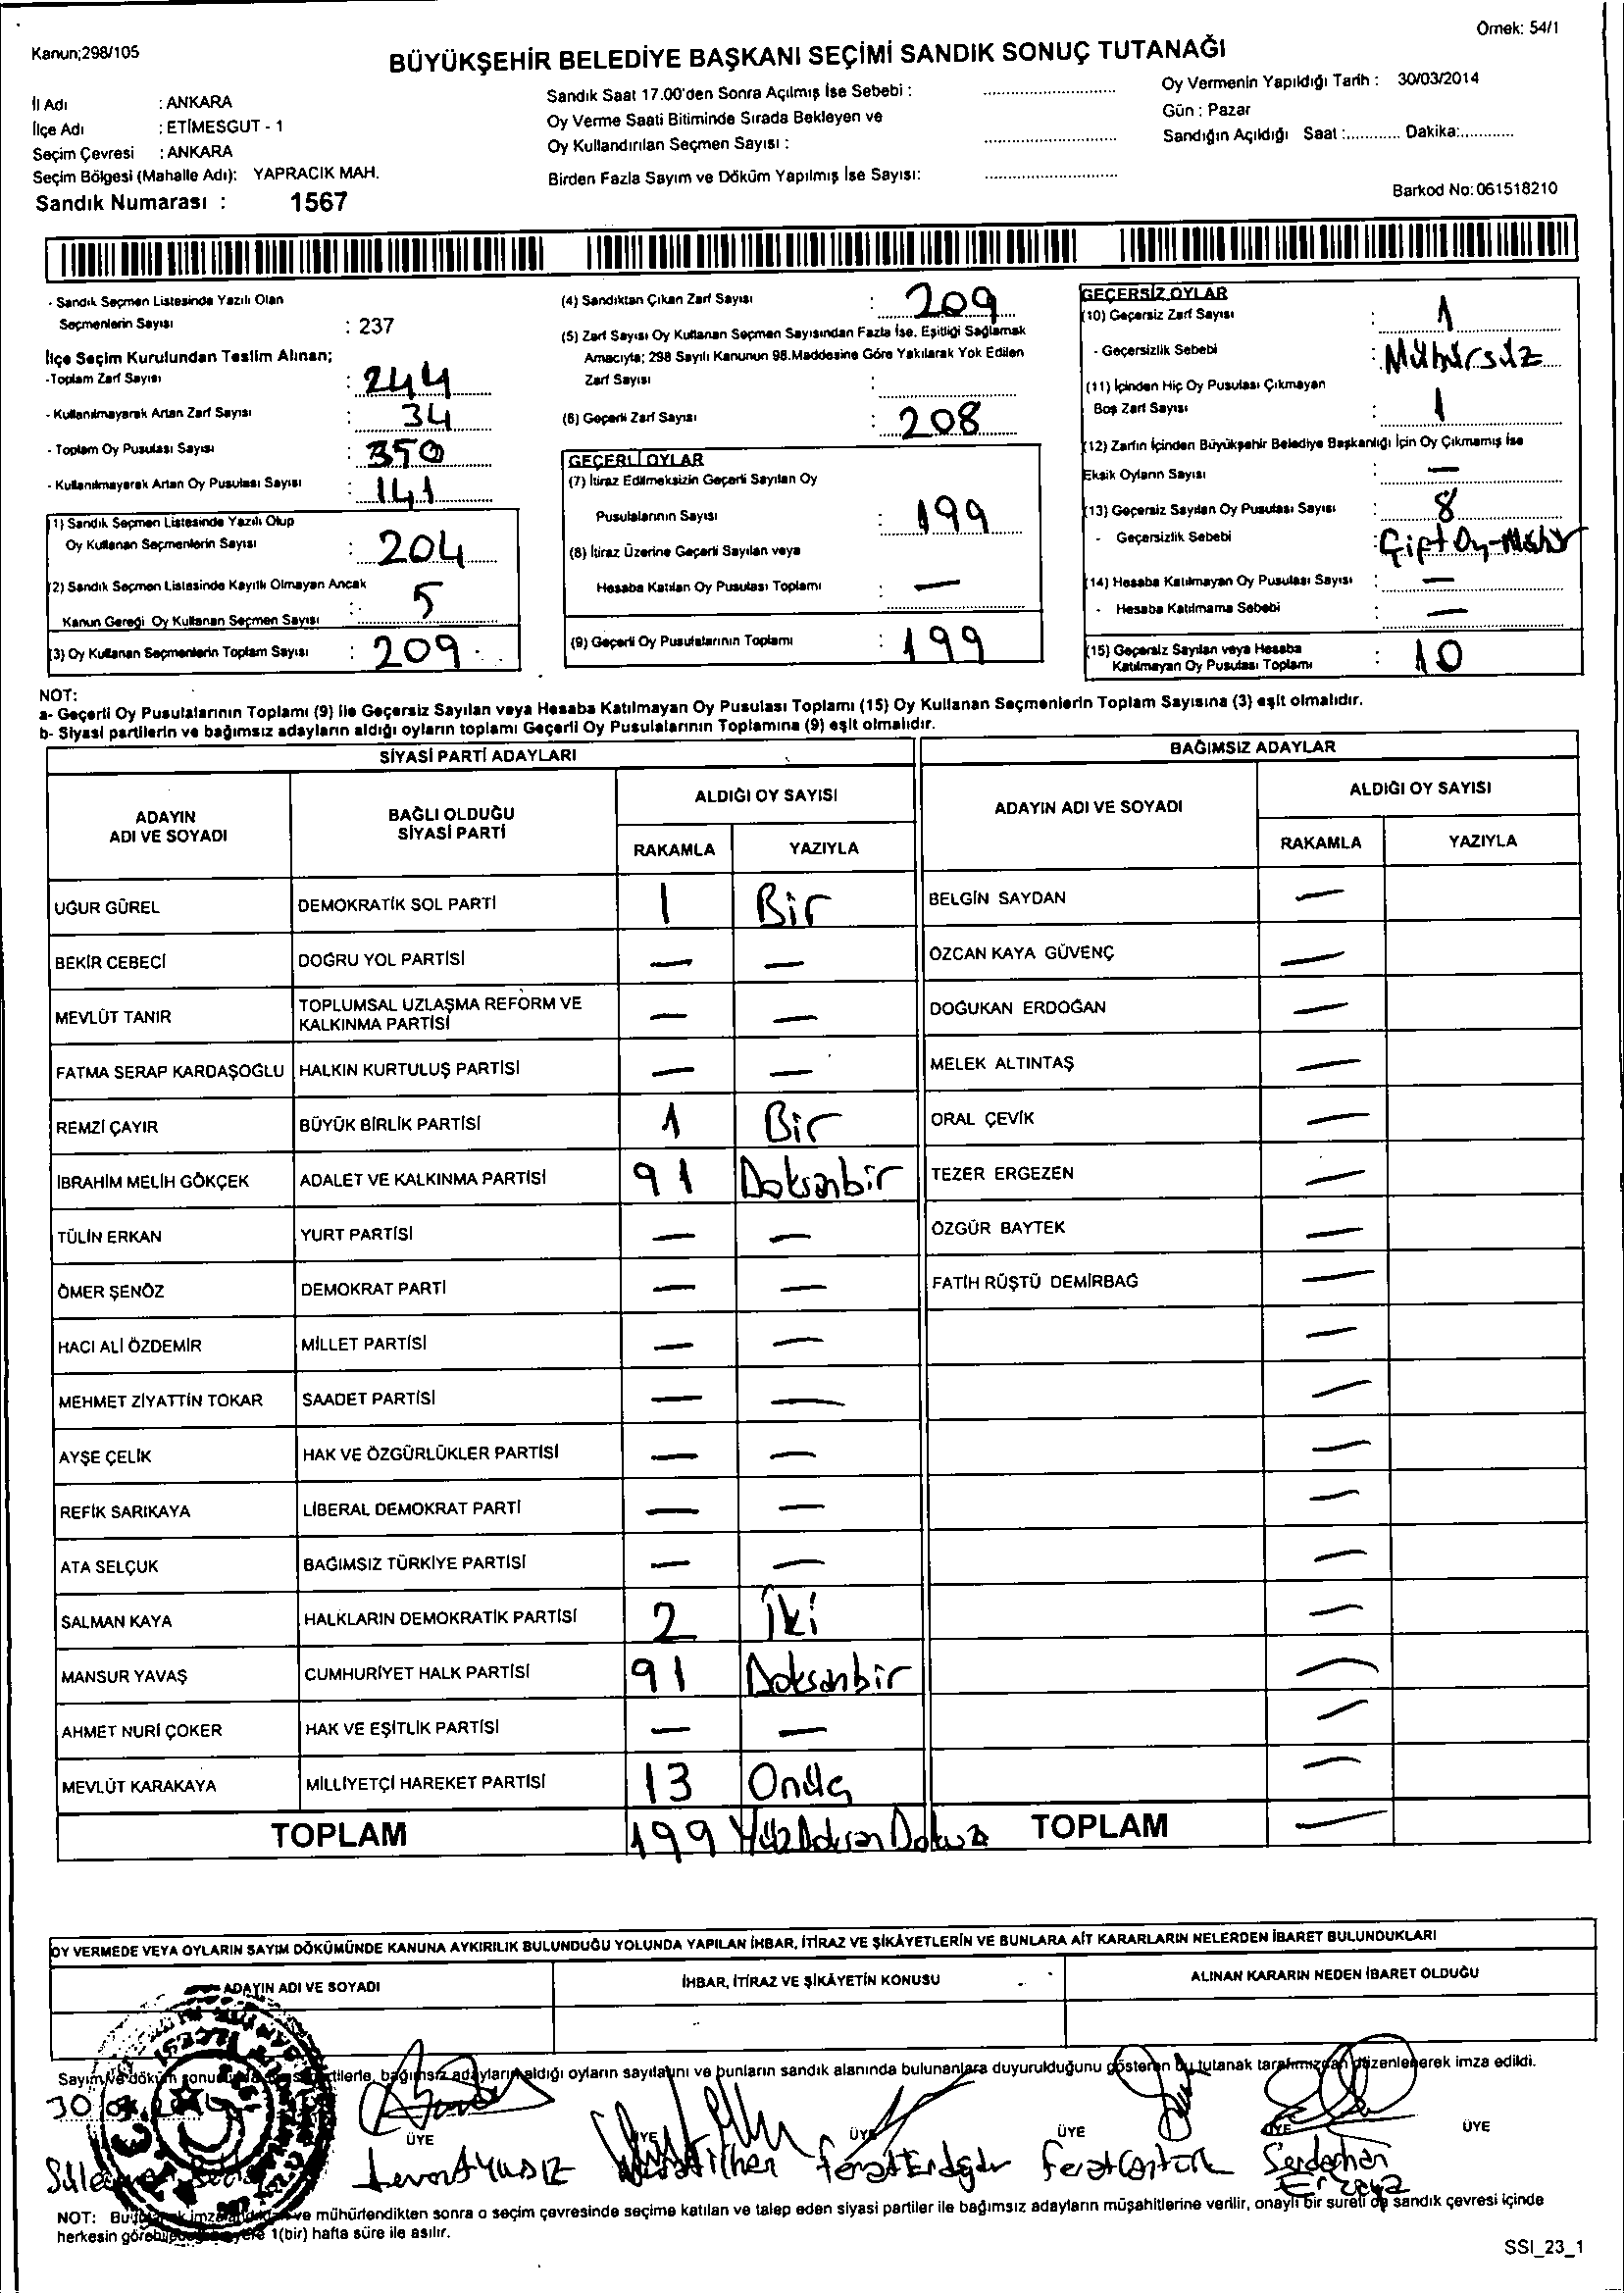 Örnek: 54/1
Kanun;298/105
BÜYÜKŞEHİR BELEDİYE BAŞKANI SEÇİMİ SANDIK SONUÇ TUTANAĞI
İl Adı : ANKARA
İlçe Adı : ETİMESGUT - 1
Seçim Çevresi : ANKARA
Seçim Bölgesi (Mahalle Adı): YAPRACIK MAH.
Sandık Numarası : 1567
Sandık Saat 17.00'den Sonra Açılmış İse Sebebi :
Oy Verme Saati Bitiminde Sırada Bekleyen ve
Oy Kullandırılan Seçmen Sayısı :
Birden Fazla Sayım ve Döküm Yapılmış İse Sayısı:
Oy Vermenin Yapıldığı Tarih : 30/03/2014
Gün : Pazar
Sandığın Açıldığı Saat :............ Dakika:............
Barkod No: 061518210
- Sandık Seçmen Listesinde Yazılı Olan
Seçmenlerin Sayısı : 237
İlçe Seçim Kurulundan Teslim Alınan;
-Toplam Zarf Sayısı : 244
- Kullanılmayarak Artan Zarf Sayısı : 34
- Toplam Oy Pusulası Sayısı : 350
- Kullanılmayarak Artan Oy Pusulası Sayısı : 141
(1) Sandık Seçmen Listesinde Yazılı Olup
Oy Kullanan Seçmenlerin Sayısı : 204
(2) Sandık Seçmen Listesinde Kayıtlı Olmayan Ancak
Kanun Gereği Oy Kullanan Seçmen Sayısı : 5
(3) Oy Kullanan Seçmenlerin Toplam Sayısı : 209
(4) Sandıktan Çıkan Zarf Sayısı : 209
(5) Zarf Sayısı Oy Kullanan Seçmen Sayısından Fazla İse. Eşitliği Sağlamak
Amacıyla; 298 Sayılı Kanunun 98.Maddesine Göre Yakılarak Yok Edilen
Zarf Sayısı :
(6) Geçerli Zarf Sayısı : 208
GEÇERLİ OYLAR
(7) İtiraz Edilmeksizin Geçerli Sayılan Oy
Pusulalarının Sayısı : 199
(8) İtiraz Üzerine Geçerli Sayılan veya
Hesaba Katılan Oy Pusulası Toplamı : —
(9) Geçerli Oy Pusulalarının Toplamı : 199
GEÇERSİZ OYLAR
(10) Geçersiz Zarf Sayısı : 1
- Geçersizlik Sebebi : Mühürsüz
(11) İçinden Hiç Oy Pusulası Çıkmayan
Boş Zarf Sayısı : 1
(12) Zarfın İçinden Büyükşehir Belediye Başkanlığı İçin Oy Çıkmamış İse
Eksik Oyların Sayısı : —
(13) Geçersiz Sayılan Oy Pusulası Sayısı : 8
- Geçersizlik Sebebi : Çift Oy-Mühür
(14) Hesaba Katılmayan Oy Pusulası Sayısı : —
- Hesaba Katılmama Sebebi : —
(15) Geçersiz Sayılan veya Hesaba
Katılmayan Oy Pusulası Toplamı : 10
NOT:
a- Geçerli Oy Pusulalarının Toplamı (9) ile Geçersiz Sayılan veya Hesaba Katılmayan Oy Pusulası Toplamı (15) Oy Kullanan Seçmenlerin Toplam Sayısına (3) eşit olmalıdır.
b- Siyasi partilerin ve bağımsız adayların aldığı oyların toplamı Geçerli Oy Pusulalarının Toplamına (9) eşit olmalıdır.
SİYASİ PARTİ ADAYLARI
ADAYIN
ADI VE SOYADI
BAĞLI OLDUĞU
SİYASİ PARTİ
ALDIĞI OY SAYISI
RAKAMLA YAZIYLA
BAĞIMSIZ ADAYLAR
ADAYIN ADI VE SOYADI
ALDIĞI OY SAYISI
RAKAMLA YAZIYLA
UĞUR GÜREL DEMOKRATİK SOL PARTİ 1 Bir BELGİN SAYDAN —
BEKİR CEBECİ DOĞRU YOL PARTİSİ — — ÖZCAN KAYA GÜVENÇ —
MEVLÜT TANIR TOPLUMSAL UZLAŞMA REFORM VE
KALKINMA PARTİSİ — — DOĞUKAN ERDOĞAN —
FATMA SERAP KARDAŞOĞLU HALKIN KURTULUŞ PARTİSİ — — MELEK ALTINTAŞ —
REMZİ ÇAYIR BÜYÜK BİRLİK PARTİSİ 1 Bir ORAL ÇEVİK —
İBRAHİM MELİH GÖKÇEK ADALET VE KALKINMA PARTİSİ 91 Doksanbir TEZER ERGEZEN —
TÜLİN ERKAN YURT PARTİSİ — — ÖZGÜR BAYTEK —
ÖMER ŞENÖZ DEMOKRAT PARTİ — — FATİH RÜŞTÜ DEMİRBAĞ —
HACI ALİ ÖZDEMİR MİLLET PARTİSİ — — —
MEHMET ZİYATTİN TOKAR SAADET PARTİSİ — — —
AYŞE ÇELİK HAK VE ÖZGÜRLÜKLER PARTİSİ — — —
REFİK SARIKAYA LİBERAL DEMOKRAT PARTİ — — —
ATA SELÇUK BAĞIMSIZ TÜRKİYE PARTİSİ — — —
SALMAN KAYA HALKLARIN DEMOKRATİK PARTİSİ 2 İki —
MANSUR YAVAŞ CUMHURİYET HALK PARTİSİ 91 Doksanbir —
AHMET NURİ ÇOKER HAK VE EŞİTLİK PARTİSİ — — —
MEVLÜT KARAKAYA MİLLİYETÇİ HAREKET PARTİSİ 13 Onüç —
TOPLAM 199 YüzDoksanDokuz TOPLAM —
OY VERMEDE VEYA OYLARIN SAYIM DÖKÜMÜNDE KANUNA AYKIRILIK BULUNDUĞU YOLUNDA YAPILAN İHBAR, İTİRAZ VE ŞİKÂYETLERİN VE BUNLARA AİT KARARLARIN NELERDEN İBARET BULUNDUKLARI
ADAYIN ADI VE SOYADI İHBAR, İTİRAZ VE ŞİKÂYETİN KONUSU ALINAN KARARIN NEDEN İBARET OLDUĞU
Sayım ve döküm adayların aldığı oyların sayılarını ve bunların sandık alanında bulunanlara duyurulduğunu gösteren bu tutanak tarafımızdan düzenlenerek imza edildi.
ÜYE ÜYE ÜYE ÜYE ÜYE ÜYE
Serdarhan
NOT: ve mühürlendikten sonra o seçim çevresinde seçime katılan ve talep eden siyasi partiler ile bağımsız adayların müşahitlerine verilir, onaylı bir sureti de sandık çevresi içinde
herkesin 1(bir) hafta süre ile asılır.
SSI_23_1